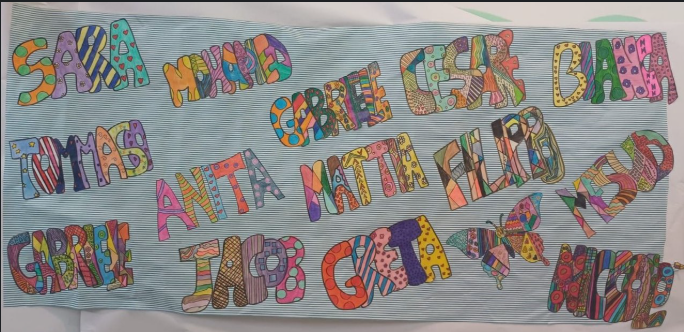 SARA
GABRIELE
CESARE
BIANCA
TOMMASO
ANITA
MATTIA
FILIPPO
GABRIELE
JACOB
GRETA
NICOLE